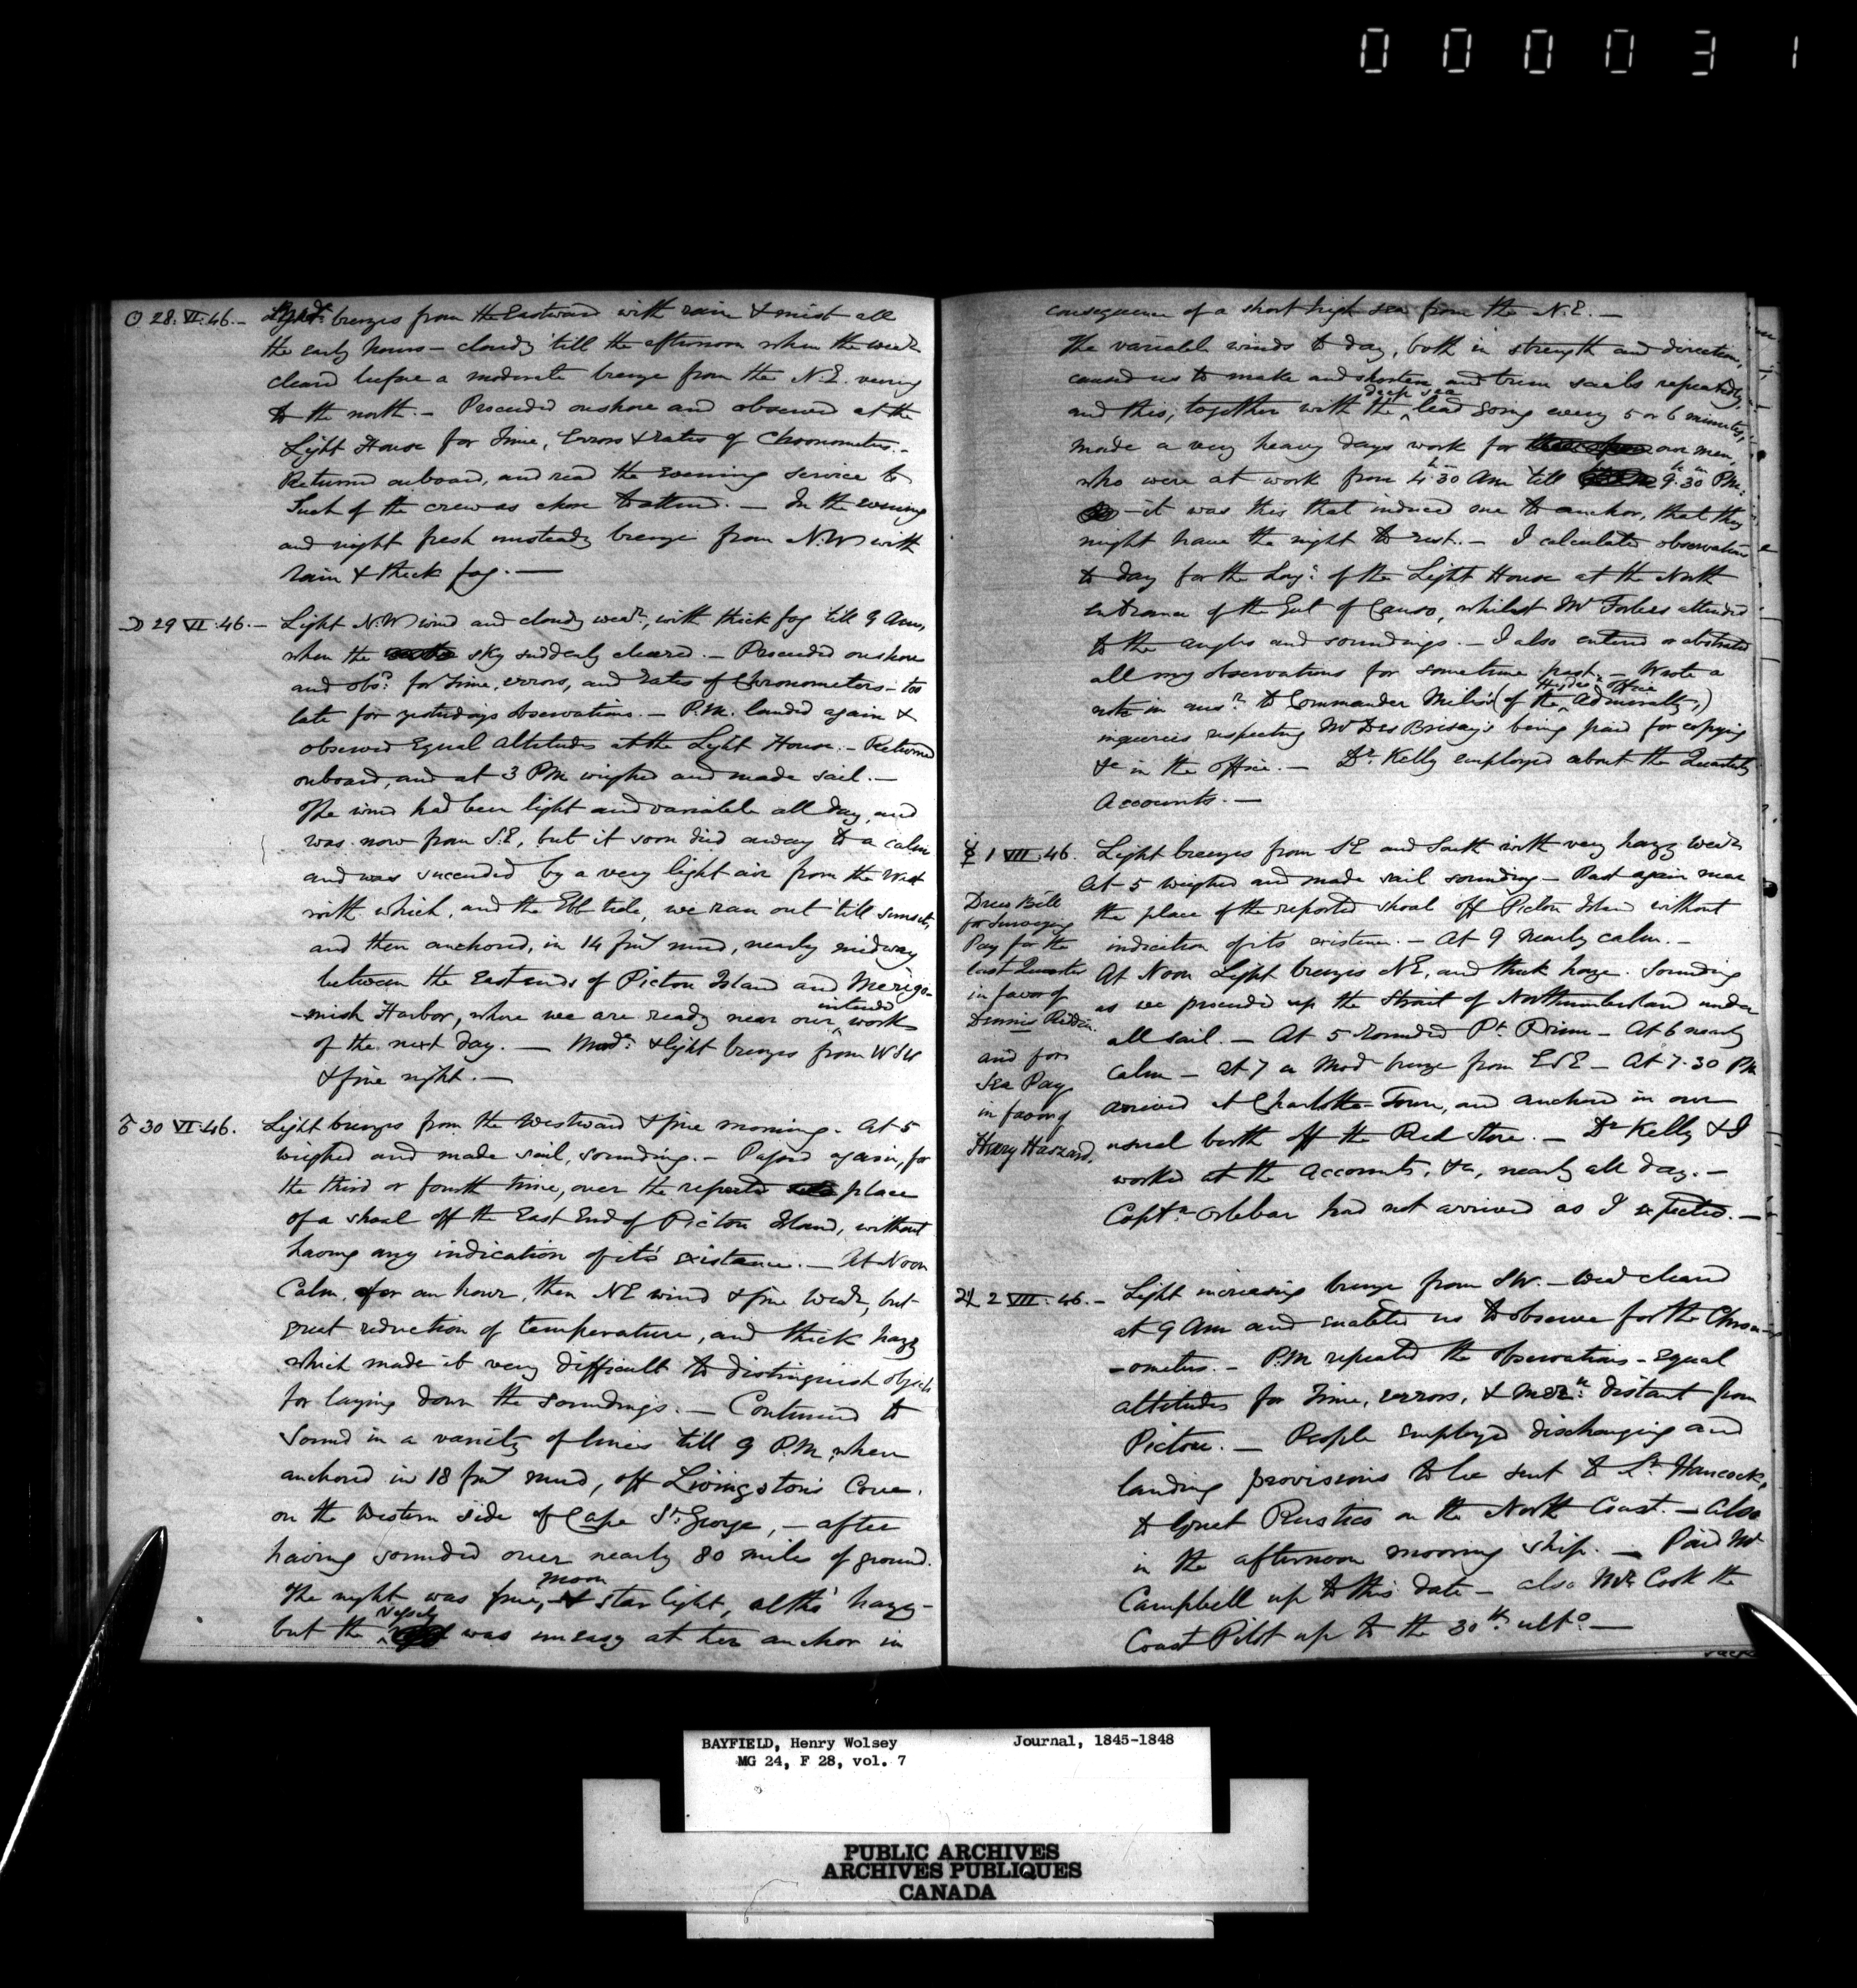 000031
☉ 28. VI. 46. — Light breezes from the Eastward with rain & mist all
the early hours — cloudy till the afternoon when the wear
cleared before a moderate breeze from the N.E. veering
to the north. — Proceeded onshore and observed at the
Light House for Time, Errors & rates of Chronometers. —
Returned onboard, and read the evening service to
Such of the crew as chose to attend. — In the evening
and night fresh unsteady breeze from N.W with
rain & thick fog. —
☽ 29 VI. 46. — Light N.W wind and cloudy wear, with thick fog till 9 Am,
when the sky suddenly cleared. — Proceeded onshore
and obsd for Time, errors, and rates of Chronometers — too
late for yesterdays observations. — P.M. landed again &
observed Equal Altitudes at the Light House. — Returned
onboard, and at 3 PM weighed and made sail. —
The wind had been light and variable all day, and
was now from S.E, but it soon died away to a calm
and was succeeded by a very light air from the West
with which, and the Ebb tide, we ran out till sunset,
and then anchored, in 14 fms mud, nearly midway
between the East ends of Pictou Island and Merigo-
-mish Harbor, where we are ready near our intended work
of the next day. — Modr & light breezes from WSW
& fine night. —
♂ 30 VI. 46. Light breezes from the Westward & fine morning. At 5
weighed and made sail, sounding. — Passed again, for
the third or fourth time, over the reported place
of a shoal off the East End of Pictou Island, without
having any indication of its existance. — At Noon
Calm, for an hour, then NE wind & fine wear, but
great reduction of temperature, and thick haze
which made it very difficult to distinguish objects
for laying down the soundings. — Continued to
Sound in a variety of lines till 9 P.M, when
anchored in 18 fms mud, off Livingston's Cove.
on the Western side of Cape St. George, — after
having sounded over nearly 80 miles of ground.
The night was fine, moon & star light, altho' hazy —
but the Vessel was uneasy at her anchor in
consequence of a short high sea from the N.E. —
The variable winds to day, both in strength and direction,
caused us to make and shorten and trim sails repeatedly
and this, together with the deep sea lead going every 5 or 6 minutes,
made a very heavy days work for our men,
who were at work from 4h 30m Am till 9h 30m PM.
— it was this that induced me to anchor, that they
might have the night to rest. — I calculated observations
to day for the Longe of the Light House at the North
entrance of the Gut of Canso, whilst Mr Forbes attended
to the angles and soundings. — I also entered or abstracted
all my observations for sometime past. — Wrote a
note in ansr to Commander Miles' (of the Hydro: Office Admiralty,)
inqueries respecting Mr Des Brisay's being paid for copying
&c in the office. — Dr. Kelly employed about the Quarterly
Accounts. —
☿ 1 VII. 46. Light breezes from SE and South with very hazy wear
At 5 weighed and made sail sounding — Past again near
the place of the reported shoal off Pictou Island without
indication of its existence. — At 9 Nearly calm. —
At Noon Light breezes NE, and thick haze. Sounding
as we proceeded up the Strait of Northumberland under
all sail. — At 5 rounded Pt. Prim — At 6 nearly
calm — at 7 a Modr breeze from ESE — At 7.30 PM
arrived at Charlotte-Town, and anchored in our
usual berth off the Red Store. — Dr Kelly & I
worked at the accounts, &c, nearly all day. —
Captn. Orlebar had not arrived as I expected. —
Drew Bills
for Surveying
Pay for the
last Quarter
in favor of
Dennis Reddin
and for
Sea Pay
in favor of
Henry Haszard.
♃ 2 VII. 46. — Light increasing breeze from SW. — Wear cleared
at 9 Am and enabled us to observe for the Chron-
-ometers. — P.M repeated the observations — Equal
altitudes for Time, errors, & Mern distant from
Pictou. — People employed discharging and
landing provisions to be sent to Lt. Hancock,
to Great Rustico on the North Coast. — Also
in the afternoon mooring ship. — Paid Mr
Campbell up to this date — also Mr Cook the
Coast Pilot up to the 30th ulto. —
BAYFIELD, Henry Wolsey Journal, 1845-1848
MG 24, F 28, vol. 7
PUBLIC ARCHIVES
ARCHIVES PUBLIQUES
CANADA